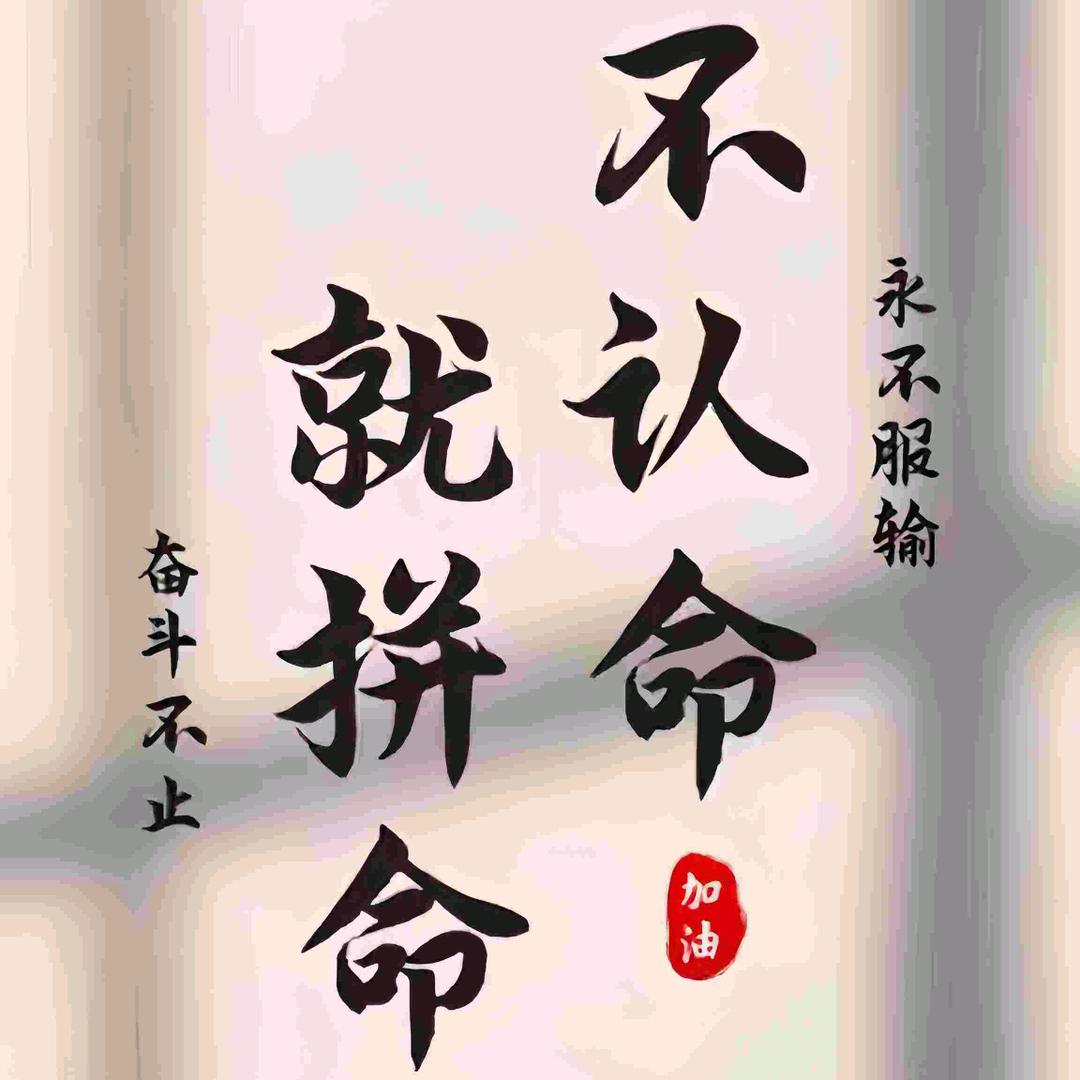 永不服输
不认命
加油
就拼命
奋斗不止